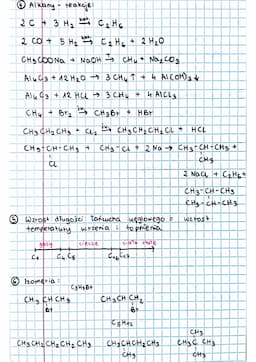 ④ Alkany - reakcje:
2 C + 3 H₂ → C₂H₆
2 CO + 5 H₂ → C₂H₆ + 2 H₂O
CH₃COONa + NaOH → CH₄ + Na₂CO₃
Al₄C₃ + 12 H₂O → 3 CH₄↑ + 4 Al(OH)₃↓
Al₄C₃ + 12 HCl → 3 CH₄ + 4 AlCl₃
CH₄ + Br₂ → CH₃Br + HBr
CH₃CH₂CH₃ + Cl₂ → CH₃CH₂CH₂Cl + HCl
CH₃-CH-CH₃ + CH₃-Cl + 2 Na → CH₃-CH-CH₃ +
Cl CH₃
2 NaCl + C₂H₆ +
CH₃-CH-CH₃
CH₃-CH-CH₃
⑤ Wzrost długości łańcucha węglowego = wzrost
temperatury wrzenia i topnienia
gazy ciecze ciała stałe
C₁ C₄ C₅ C₁₆ C₁₇
⑥ Izomeria:
C₃H₇Br
CH₃CHCH₃ CH₃CHCH₂
Br Br
C₅H₁₂
CH₃CH₂CH₂CH₂CH₃ CH₃CHCH₂CH₃ CH₃C CH₃
CH₃ CH₃ CH₃